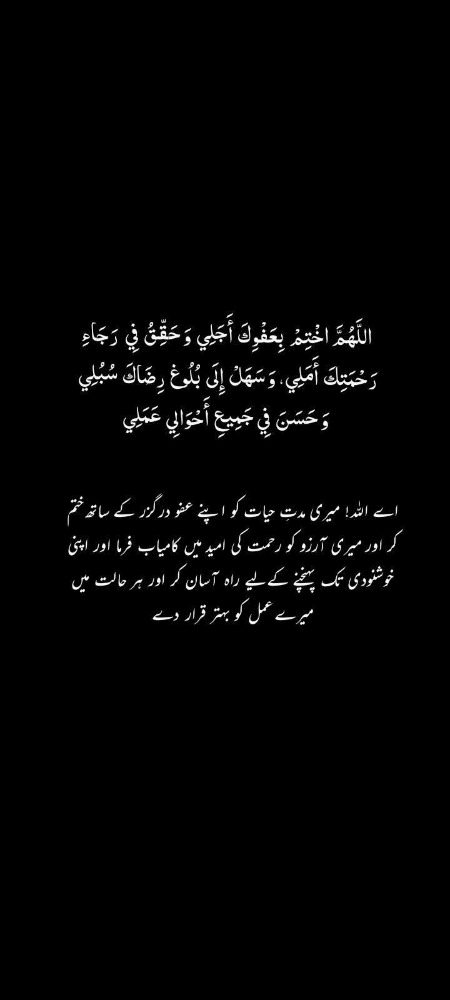 اللَّهُمَّ اخْتِمْ بِعَفْوِكَ أَجَلِي وَحَقِّقُ فِي رَجَاءِ
رَحْمَتِكَ أَمَلِي، وَسَهَلْ إِلَى بُلُوغِ رِضَاكَ سُبُلِي
وَحَسَنَ فِي جَمِيعِ أَحْوَالِي عَمَلِي
اے اللہ! میری مدتِ حیات کو اپنے عفو درگزر کے ساتھ ختم
کر اور میری آرزو کو رحمت کی امید میں کامیاب فرما اور اپنی
خوشنودی تک پہنچنے کےلیے راہ آسان کر اور ہر حالت میں
میرے عمل کو بہتر قرار دے